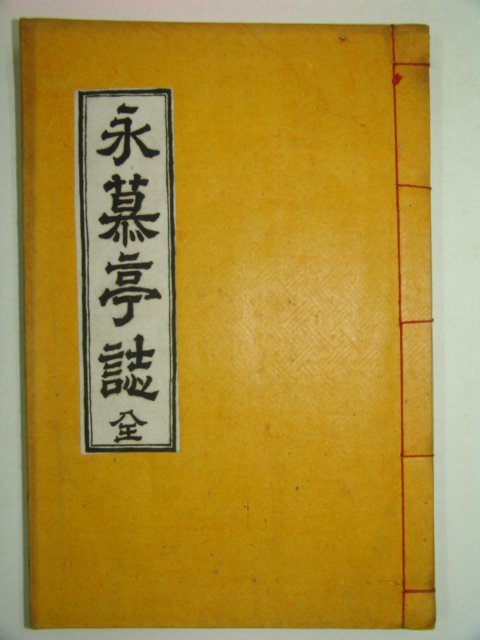 永慕亭誌全